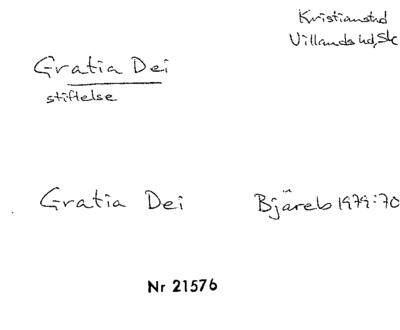 Kristianstad
Villands hd, Sk
Gratia Dei
stiftelse
Gratia Dei Bjäreb 1979:70
Nr 21576